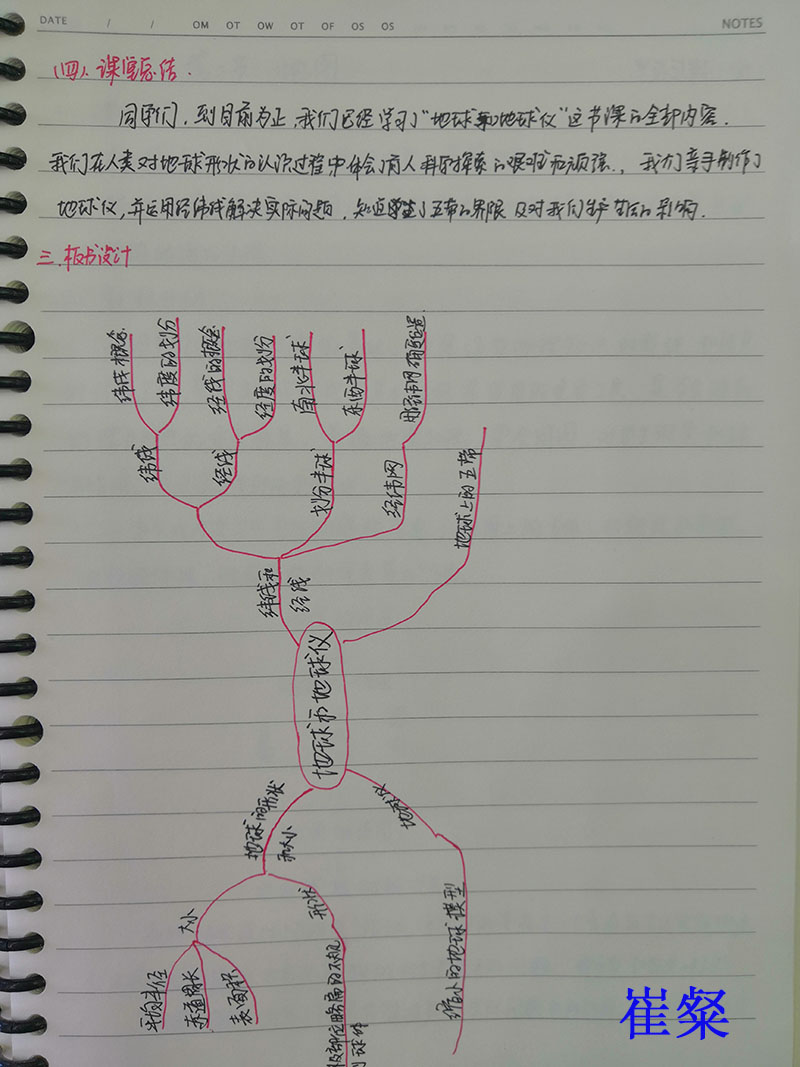 DATE / / OM OT OW OT OF OS OS NOTES
(四)、课堂总结.
同学们，到目前为止，我们已经学习了“地球和地球仪”这节课的全部内容.
我们在人类对地球形状的认识过程中体会了前人科学探索的艰难和顽强., 我们亲手制作了
地球仪,并运用经纬线解决实际问题，知道了五带的界限及对我们生产生活的影响.
三.板书设计
纬线概念
纬度的划分
经线的概念
经度的划分
南北半球
东西半球
用经纬网确定位置
纬线
经线
划分半球
经纬网
地球上的五带
纬线和
经线
地球和地球仪
地球的形状
和大小
地球仪
大小
形状
平均半径
赤道周长
表面积
极部位略扁的不规
则球体
缩小的地球模型
崔粲